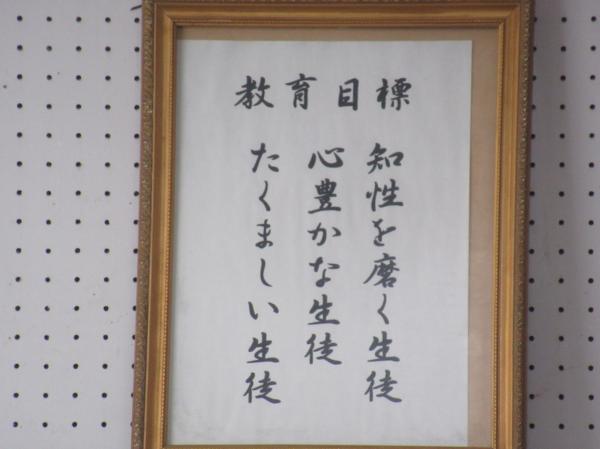 教育目標
知性を磨く生徒
心豊かな生徒
たくましい生徒